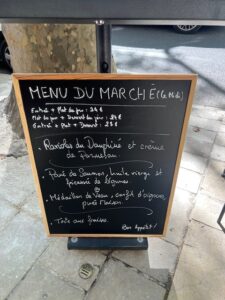 MENU DU MARCHÉ (Le Midi)
Entrée + Plat du jour : 24 €
Plat du jour + Dessert du jour : 24 €
Entrée + Plat + Dessert : 28 €
Ravioles du Dauphiné et crème
de Parmesan
Pavé de Saumon, huile vierge et
fricassée de légumes
Médaillon de Veau, confit d'oignons,
purée maison
Tarte aux fraises
Bon Appétit !